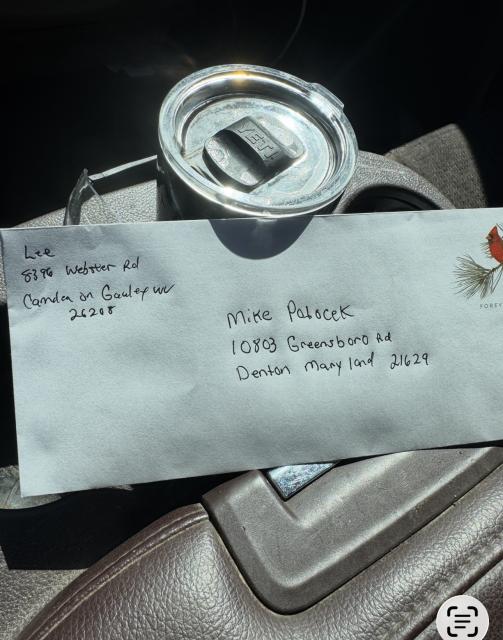 YETI
Lee
8396 Webster Rd
Camden on Gauley WV
26208
FOREV
Mike Pabocek
10803 Greensboro Rd
Denton Maryland 21629